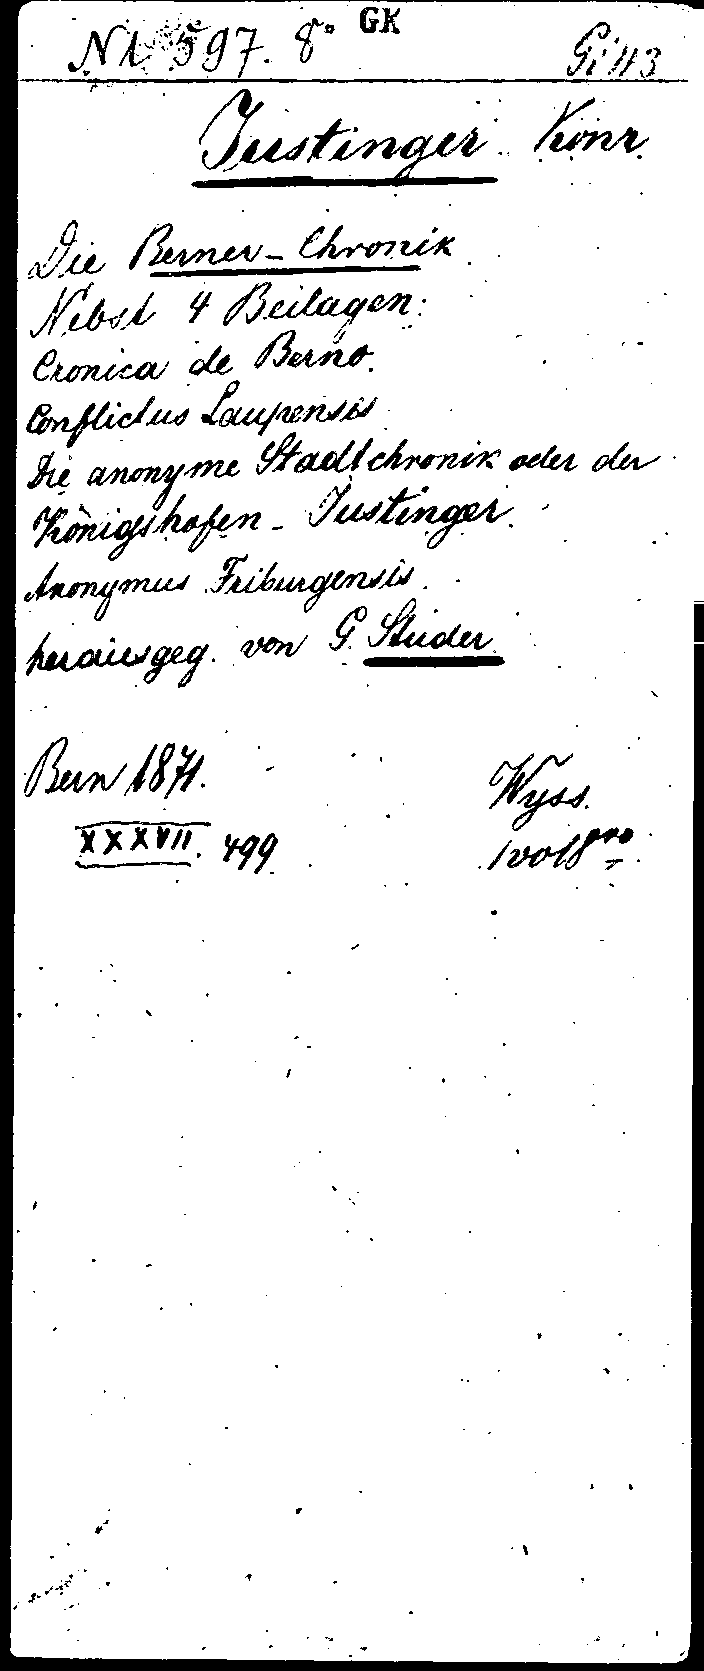 N1 597. 8° GK Gi 113
Justinger Konr.
Die Berner-Chronik
Nebst 4 Beilagen:
Cronica de Berno.
Conflictus Laupensis
Die anonyme Stadtchronik oder der
Königshofen-Justinger.
Anonymus Friburgensis.
herausgeg. von G. Studer
Bern 1871. Wyss.
XXXVII. 499 1 vol 8vo